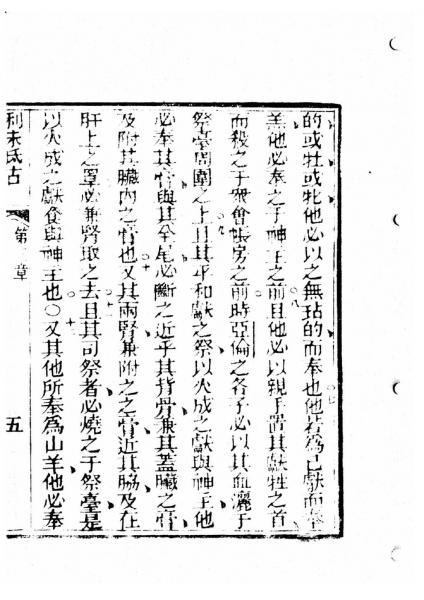 的或牡或牝他必以之無玷的而奉也他若爲己獻而奉
羔他必奉之于神主之前且他必以親手置其獻牲之首
而殺之于衆會帳房之前時亞倫之各子必以其血灑于
祭臺周圍之上且其平和獻之祭以火成之獻與神主他
必奉其膏與其全尾必斷之近乎其背骨兼其蓋臟之膏
及附其臟內之膏也又其兩腎兼附之之膏近其脇及在
肝上之罩必兼腎取之去且其司祭者必燒之于祭臺是
以火成之獻食與神主也○又其他所奉爲山羊他必奉
利未氏古 第 章 五